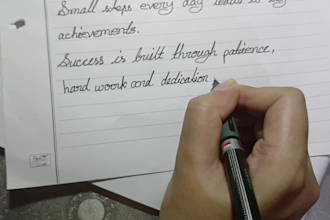 Small steps every day leads to big
achievements.
Success is built through patience,
hard woork and dedication